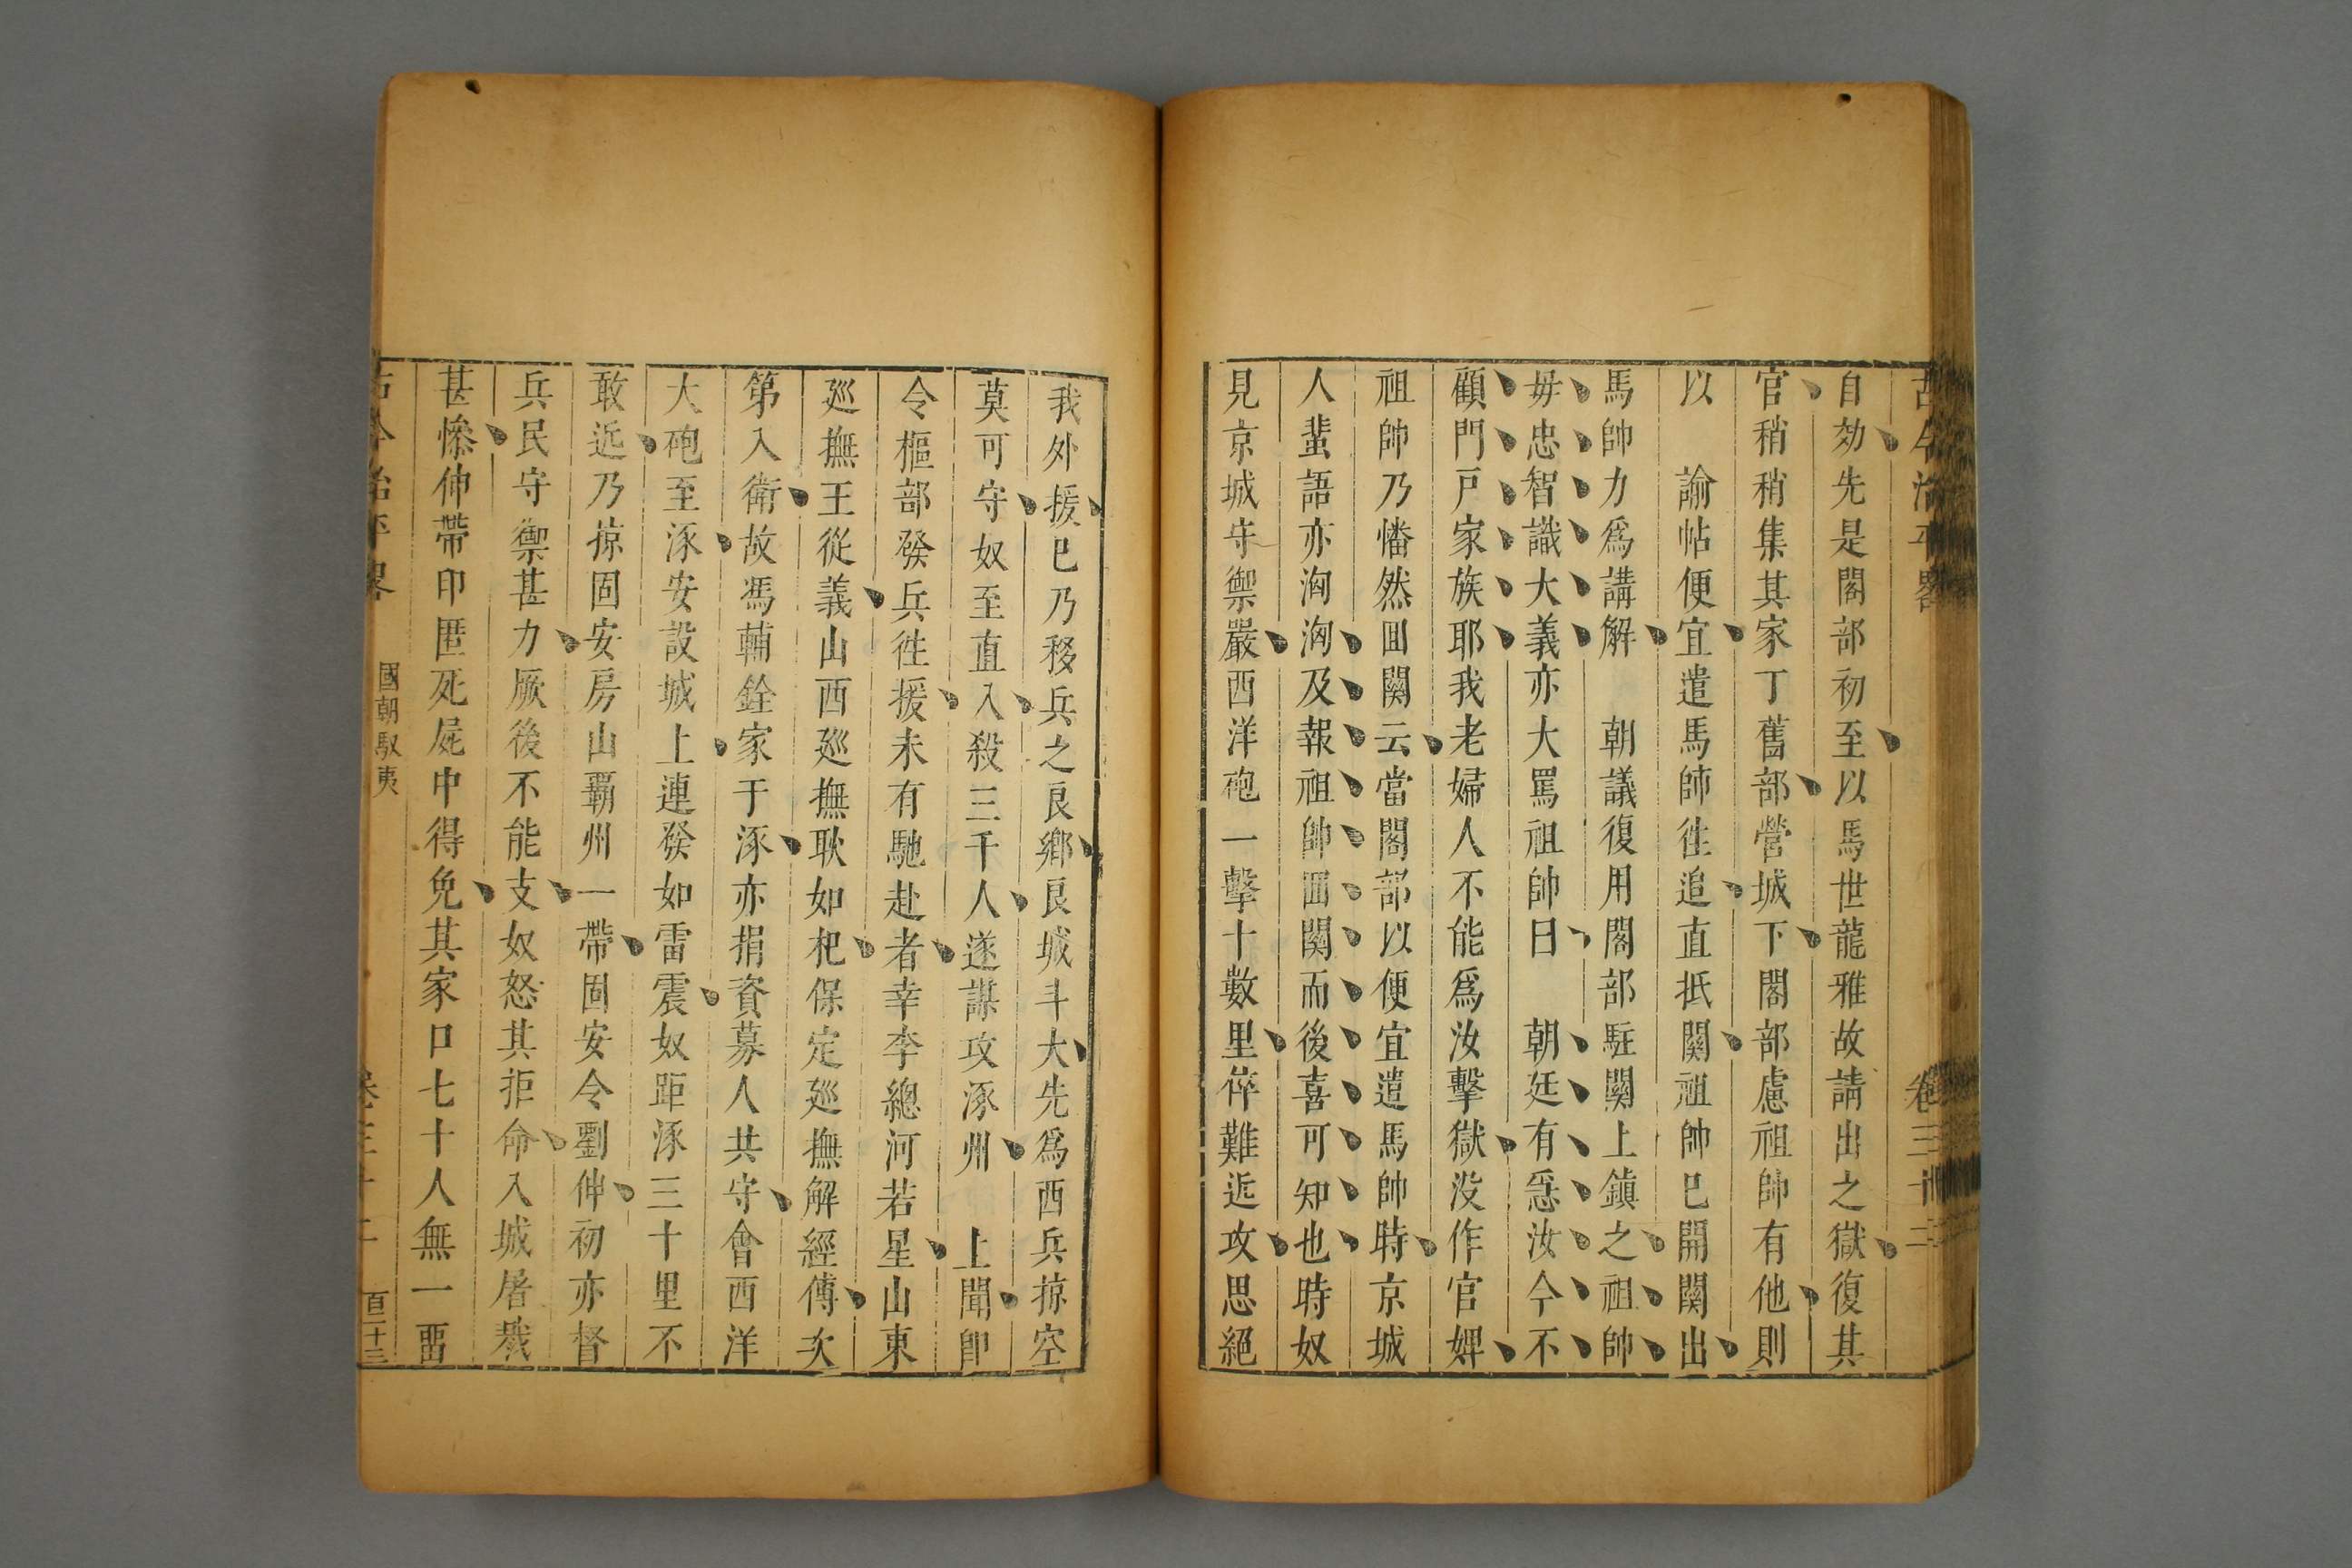 古今治平畧 卷三十二
自効先是閣部初至以馬世龍雅故請出之獄復其
官稍稍集其家丁舊部營城下閣部慮祖帥有他則
以 諭帖便宜遣馬帥徃追直抵關祖帥巳開關出
馬帥力爲講解 朝議復用閣部駐關上鎮之祖帥
毋忠智識大義亦大罵祖帥曰 朝廷有惡汝今不
顧門戸家族耶我老婦人不能爲汝擊獄没作官婢
祖帥乃幡然囬關云當閣部以便宜遣馬帥時京城
人蜚語亦洶洶及報祖帥囬關而後喜可知也時奴
見京城守禦嚴西洋砲一擊十數里倅難近攻思絕
我外援巳乃移兵之良鄉良城斗大先爲西兵掠空
莫可守奴至直入殺三千人遂謀攻涿州 上聞卽
令樞部發兵徃援未有馳赴者幸李總河若星山東
廵撫王從義山西廵撫耿如杞保定廵撫解經傳次
第入衛故馮輔銓家于涿亦捐資募人共守會西洋
大砲至涿安設城上連發如雷震奴距涿三十里不
敢近乃掠固安房山霸州一帶固安令劉伸初亦督
兵民守禦甚力厥後不能支奴怒其拒命入城屠戮
甚慘伸帶印匿死屍中得免其家口七十人無一畱
古今治平畧 國朝馭夷 卷三十二 百二十三